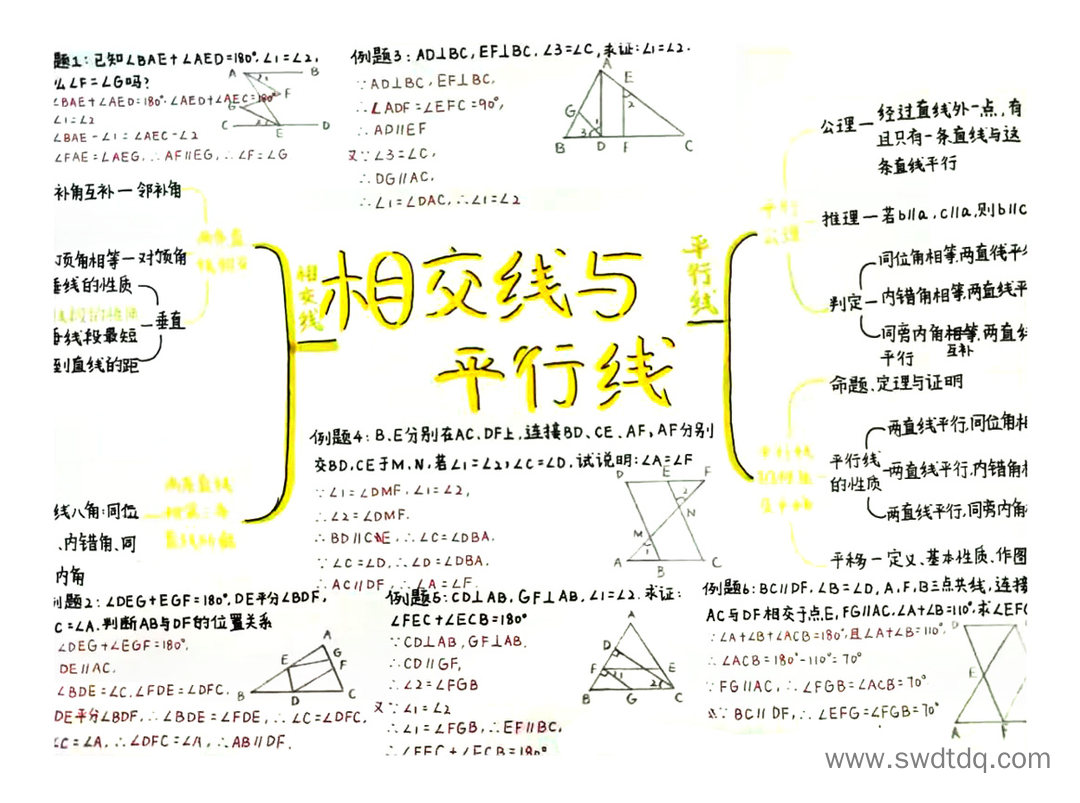 题1：已知∠BAE＋∠AED=180°，∠1=∠2，
么∠F=∠G吗？
∠BAE＋∠AED=180°∠AED＋∠AEC=180°
∠1=∠2
∠BAE－∠1=∠AEC－∠2
∠FAE=∠AEG，∴AF∥EG，∴∠F=∠G
A B
F
G
C E D
例题3：AD⊥BC，EF⊥BC，∠3=∠C，求证：∠1=∠2．
∵AD⊥BC，EF⊥BC，
∴∠ADF=∠EFC=90°，
∴AD∥EF
又∵∠3=∠C，
∴DG∥AC，
∴∠1=∠DAC，∴∠1=∠2
A
E
G 2
3 1
B D F C
公理—经过直线外一点，有
且只有一条直线与这
条直线平行
平行
公理
推理—若b∥a，c∥a，则b∥c
判定
同位角相等，两直线平行
内错角相等，两直线平
同旁内角相等，两直线
互补
平行
补角互补—邻补角
顶角相等—对顶角
垂线的性质
垂线段最短
垂直
到直线的距
相交线
相交线与
平行线
平行线
命题、定理与证明
平行线
的性质
两直线平行，同位角相
两直线平行，内错角相
两直线平行，同旁内角
平移—定义、基本性质、作图
两条直线
线八角：同位
、内错角、同
内角
例题4：B、E分别在AC、DF上，连接BD、CE、AF，AF分别
交BD，CE于M，N，若∠1=∠2，∠C=∠D．试说明：∠A=∠F
∵∠1=∠DMF，∠1=∠2，
∴∠2=∠DMF．
∴BD∥CE，∴∠C=∠DBA，
∵∠C=∠D，∴∠D=∠DBA，
∴AC∥DF，∴∠A=∠F．
D E F
2
N
M
1
A B C
题2：∠DEG＋EGF=180°，DE平分∠BDF，
C=∠A．判断AB与DF的位置关系
∠DEG＋∠EGF=180°，
DE∥AC，
∠BDE=∠C，∠FDE=∠DFC，
DE平分∠BDF，∴∠BDE=∠FDE，∴∠C=∠DFC，
∠C=∠A，∴∠DFC=∠A，∴AB∥DF．
A
G
E F
B D C
例题5：CD⊥AB，GF⊥AB，∠1=∠2．求证：
∠FEC＋∠ECB=180°
∵CD⊥AB，GF⊥AB，
∴CD∥GF，
∴∠2=∠FGB
又∵∠1=∠2
∴∠1=∠FGB，∴EF∥BC，
∴∠FEC＋∠ECB=180°
A
D
F 1 E
2
B G C
例题6：BC∥DF，∠B=∠D，A，F，B三点共线，连接
AC与DF相交于点E，FG∥AC，∠A＋∠B=110°，求∠EFG
∵∠A＋∠B＋∠ACB=180°，且∠A＋∠B=110°，
∴∠ACB=180°－110°=70°
∵FG∥AC，∴∠FGB=∠ACB=70°
又∵BC∥DF，∴∠EFG=∠FGB=70°
D
E
A F
www.swdtdq.com